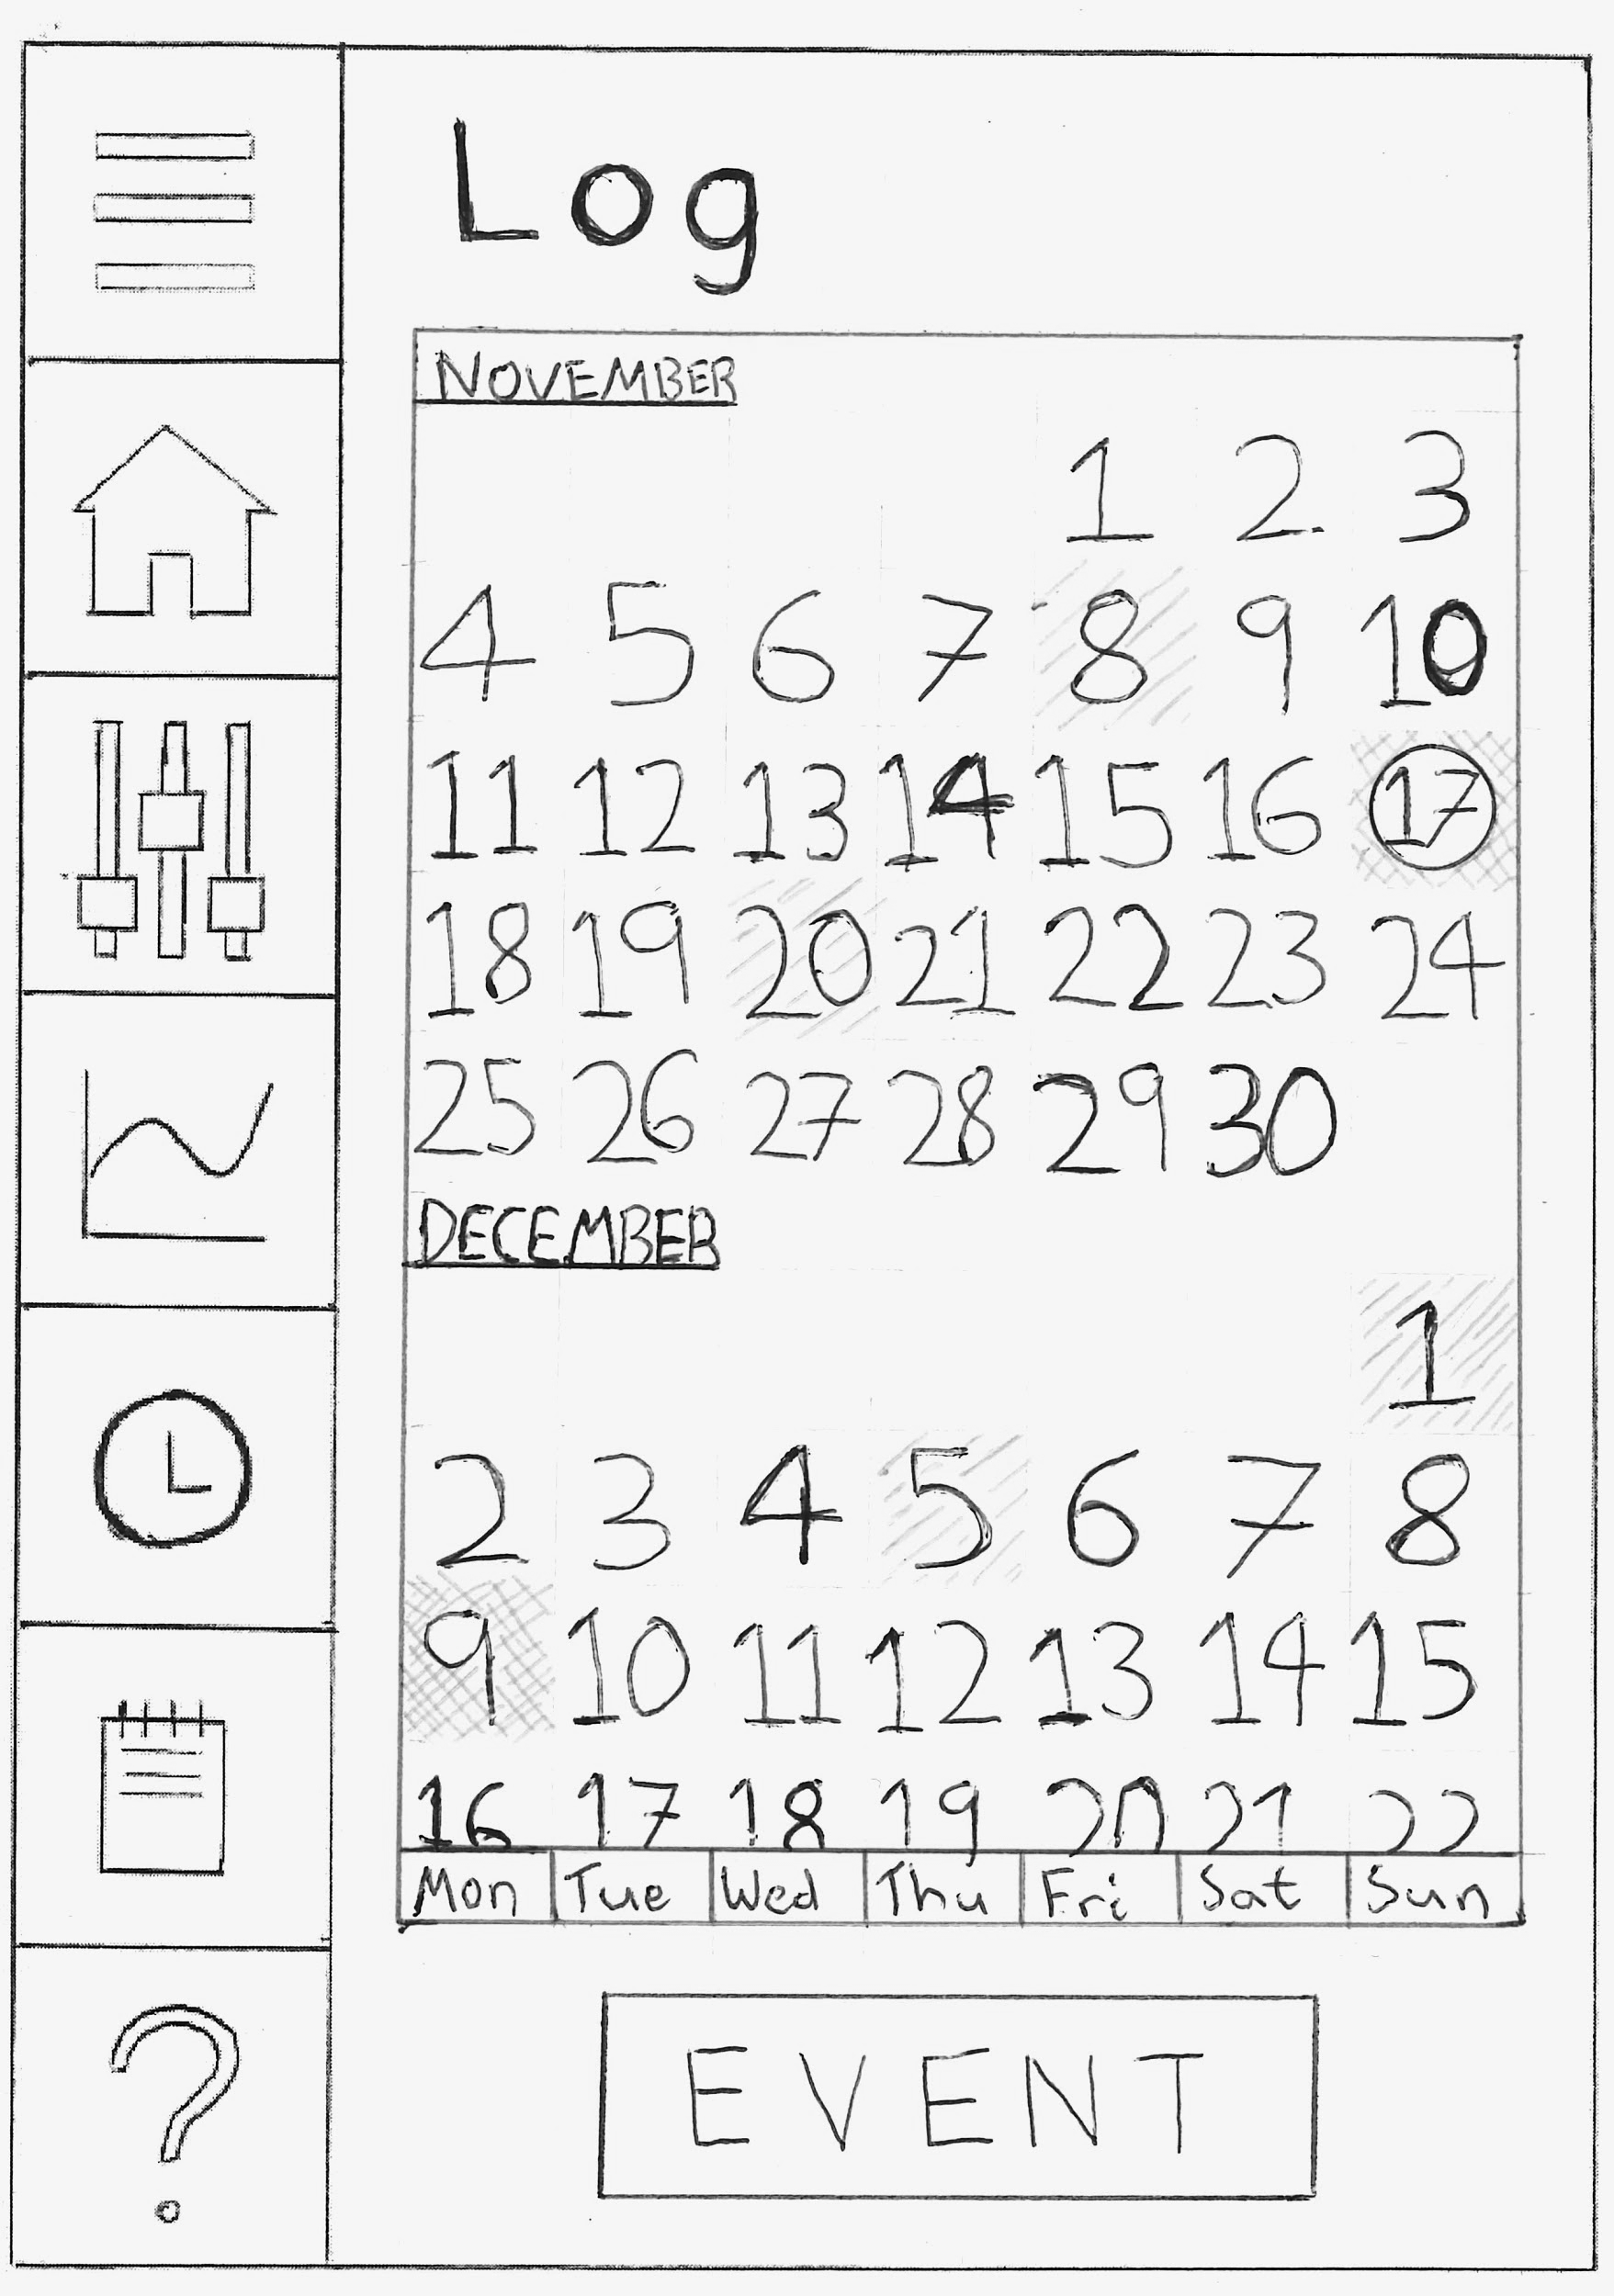 Log
NOVEMBER
1 2 3
4 5 6 7 8 9 10
11 12 13 14 15 16 17
18 19 20 21 22 23 24
25 26 27 28 29 30
DECEMBER
1
2 3 4 5 6 7 8
9 10 11 12 13 14 15
16 17 18 19 20 21 22
Mon Tue Wed Thu Fri Sat Sun
EVENT